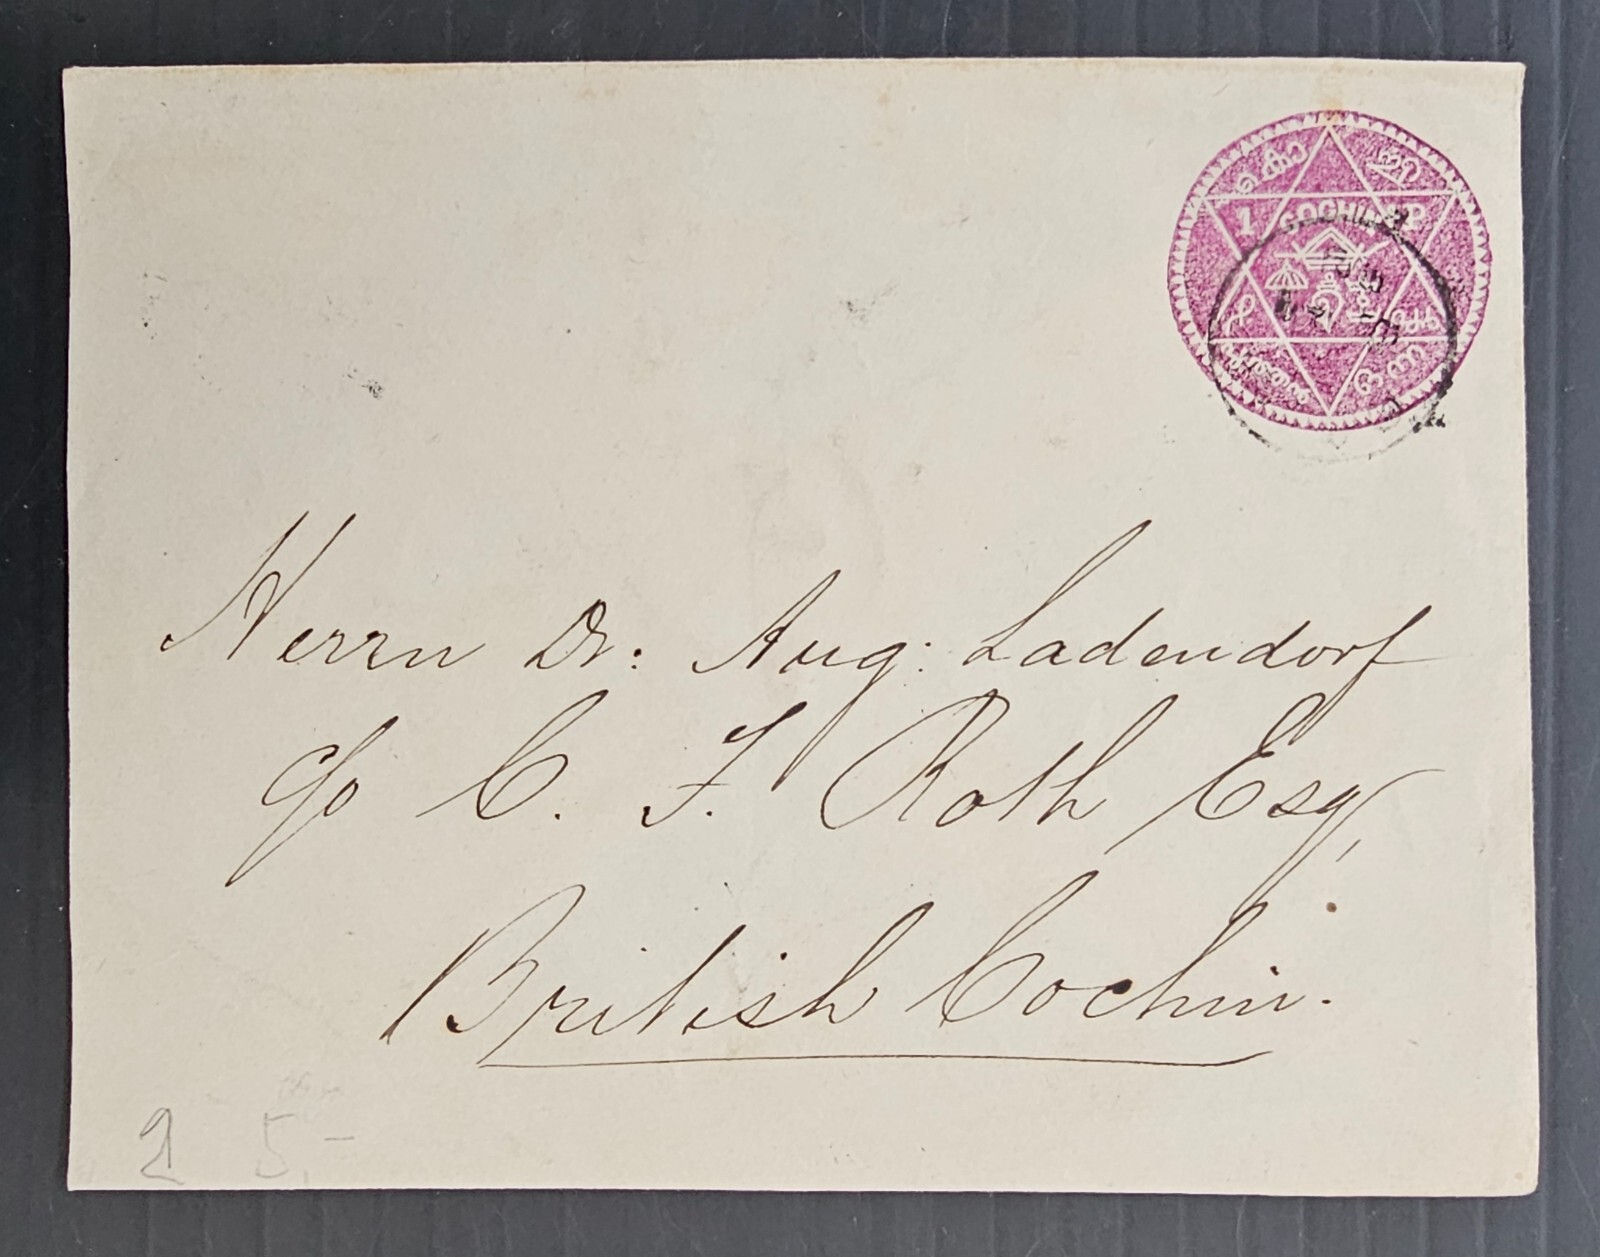 കൊച്ചി
1 COCHIN P
Herrn Dr: Aug: Ladendorf
c/o C. F. Roth Esq,
British Cochin.
2 5,-